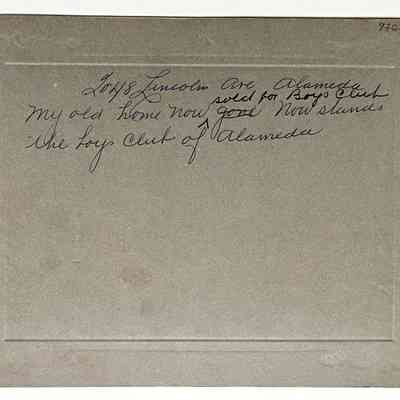 2048 Lincoln Ave Alameda
sold for Boys Club
My old home now gone Now stands
the boys Club of Alameda